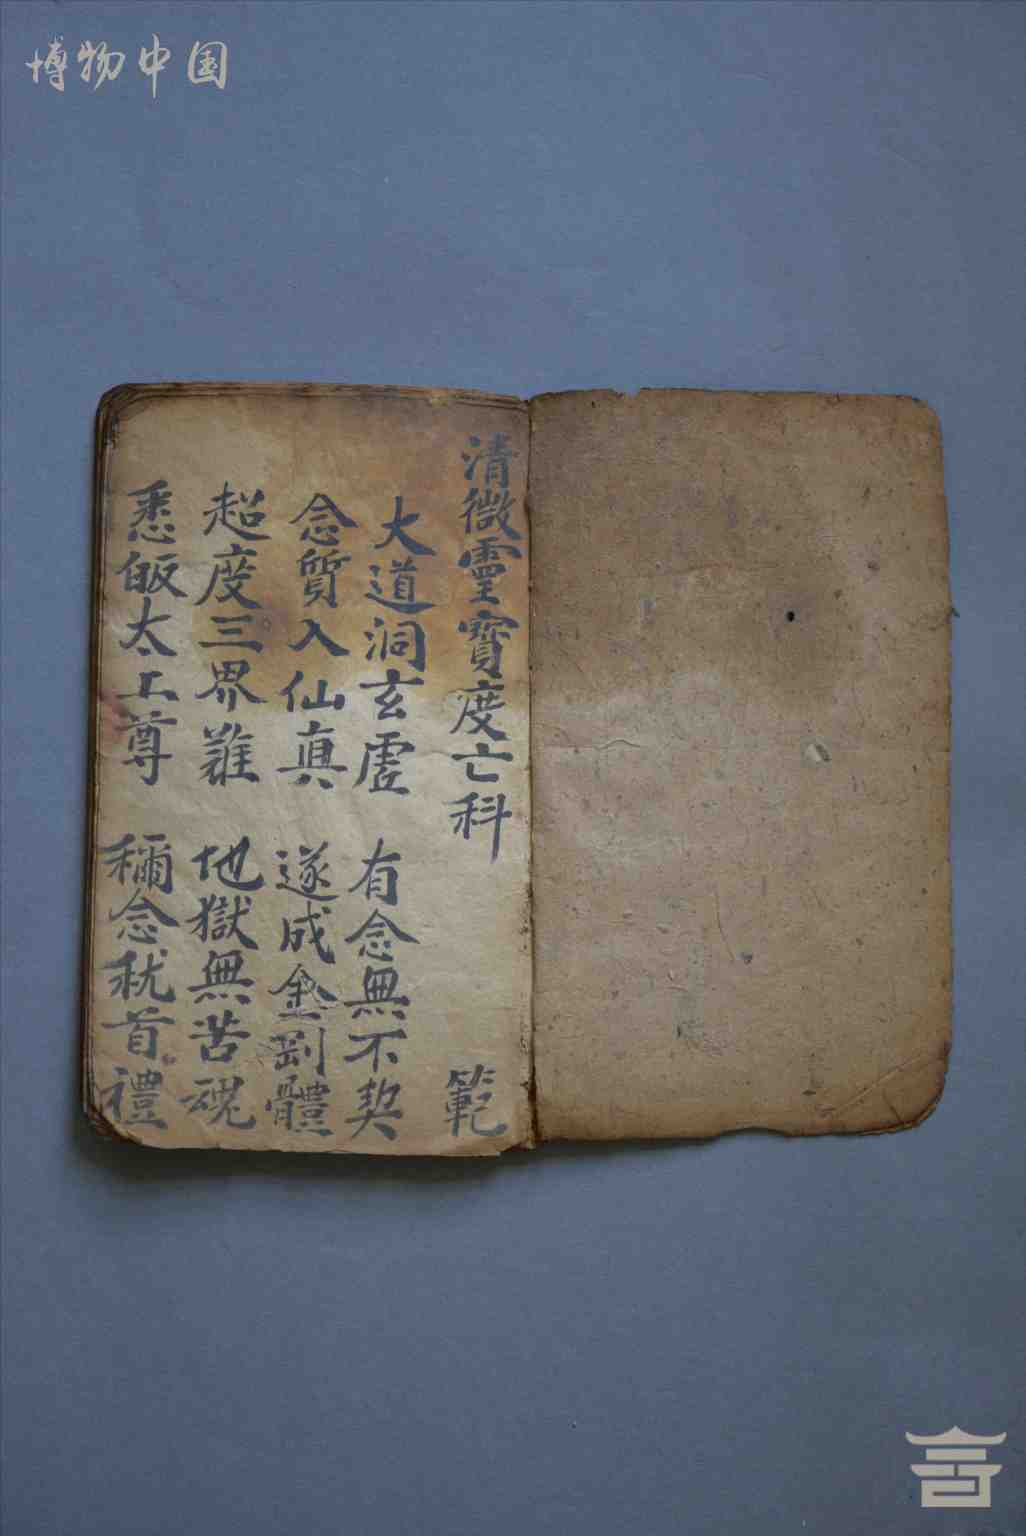 博物中国
清微靈寳度亡科 範
大道洞玄虚 有念無不契
念質入仙真 遂成金剛體
超度三界難 地獄無苦魂
悉皈太上尊 稱念稽首禮